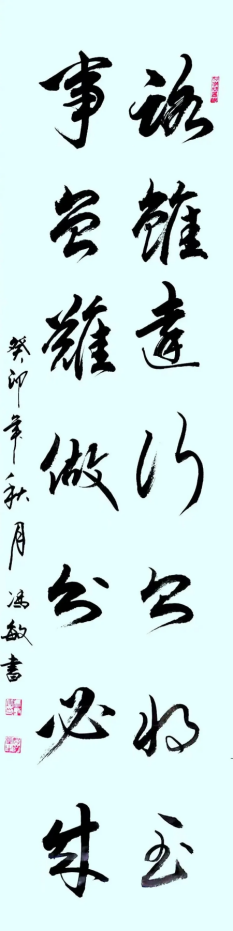 路雖遠行則將至
事雖難做則必成
癸卯年秋月馮敏書